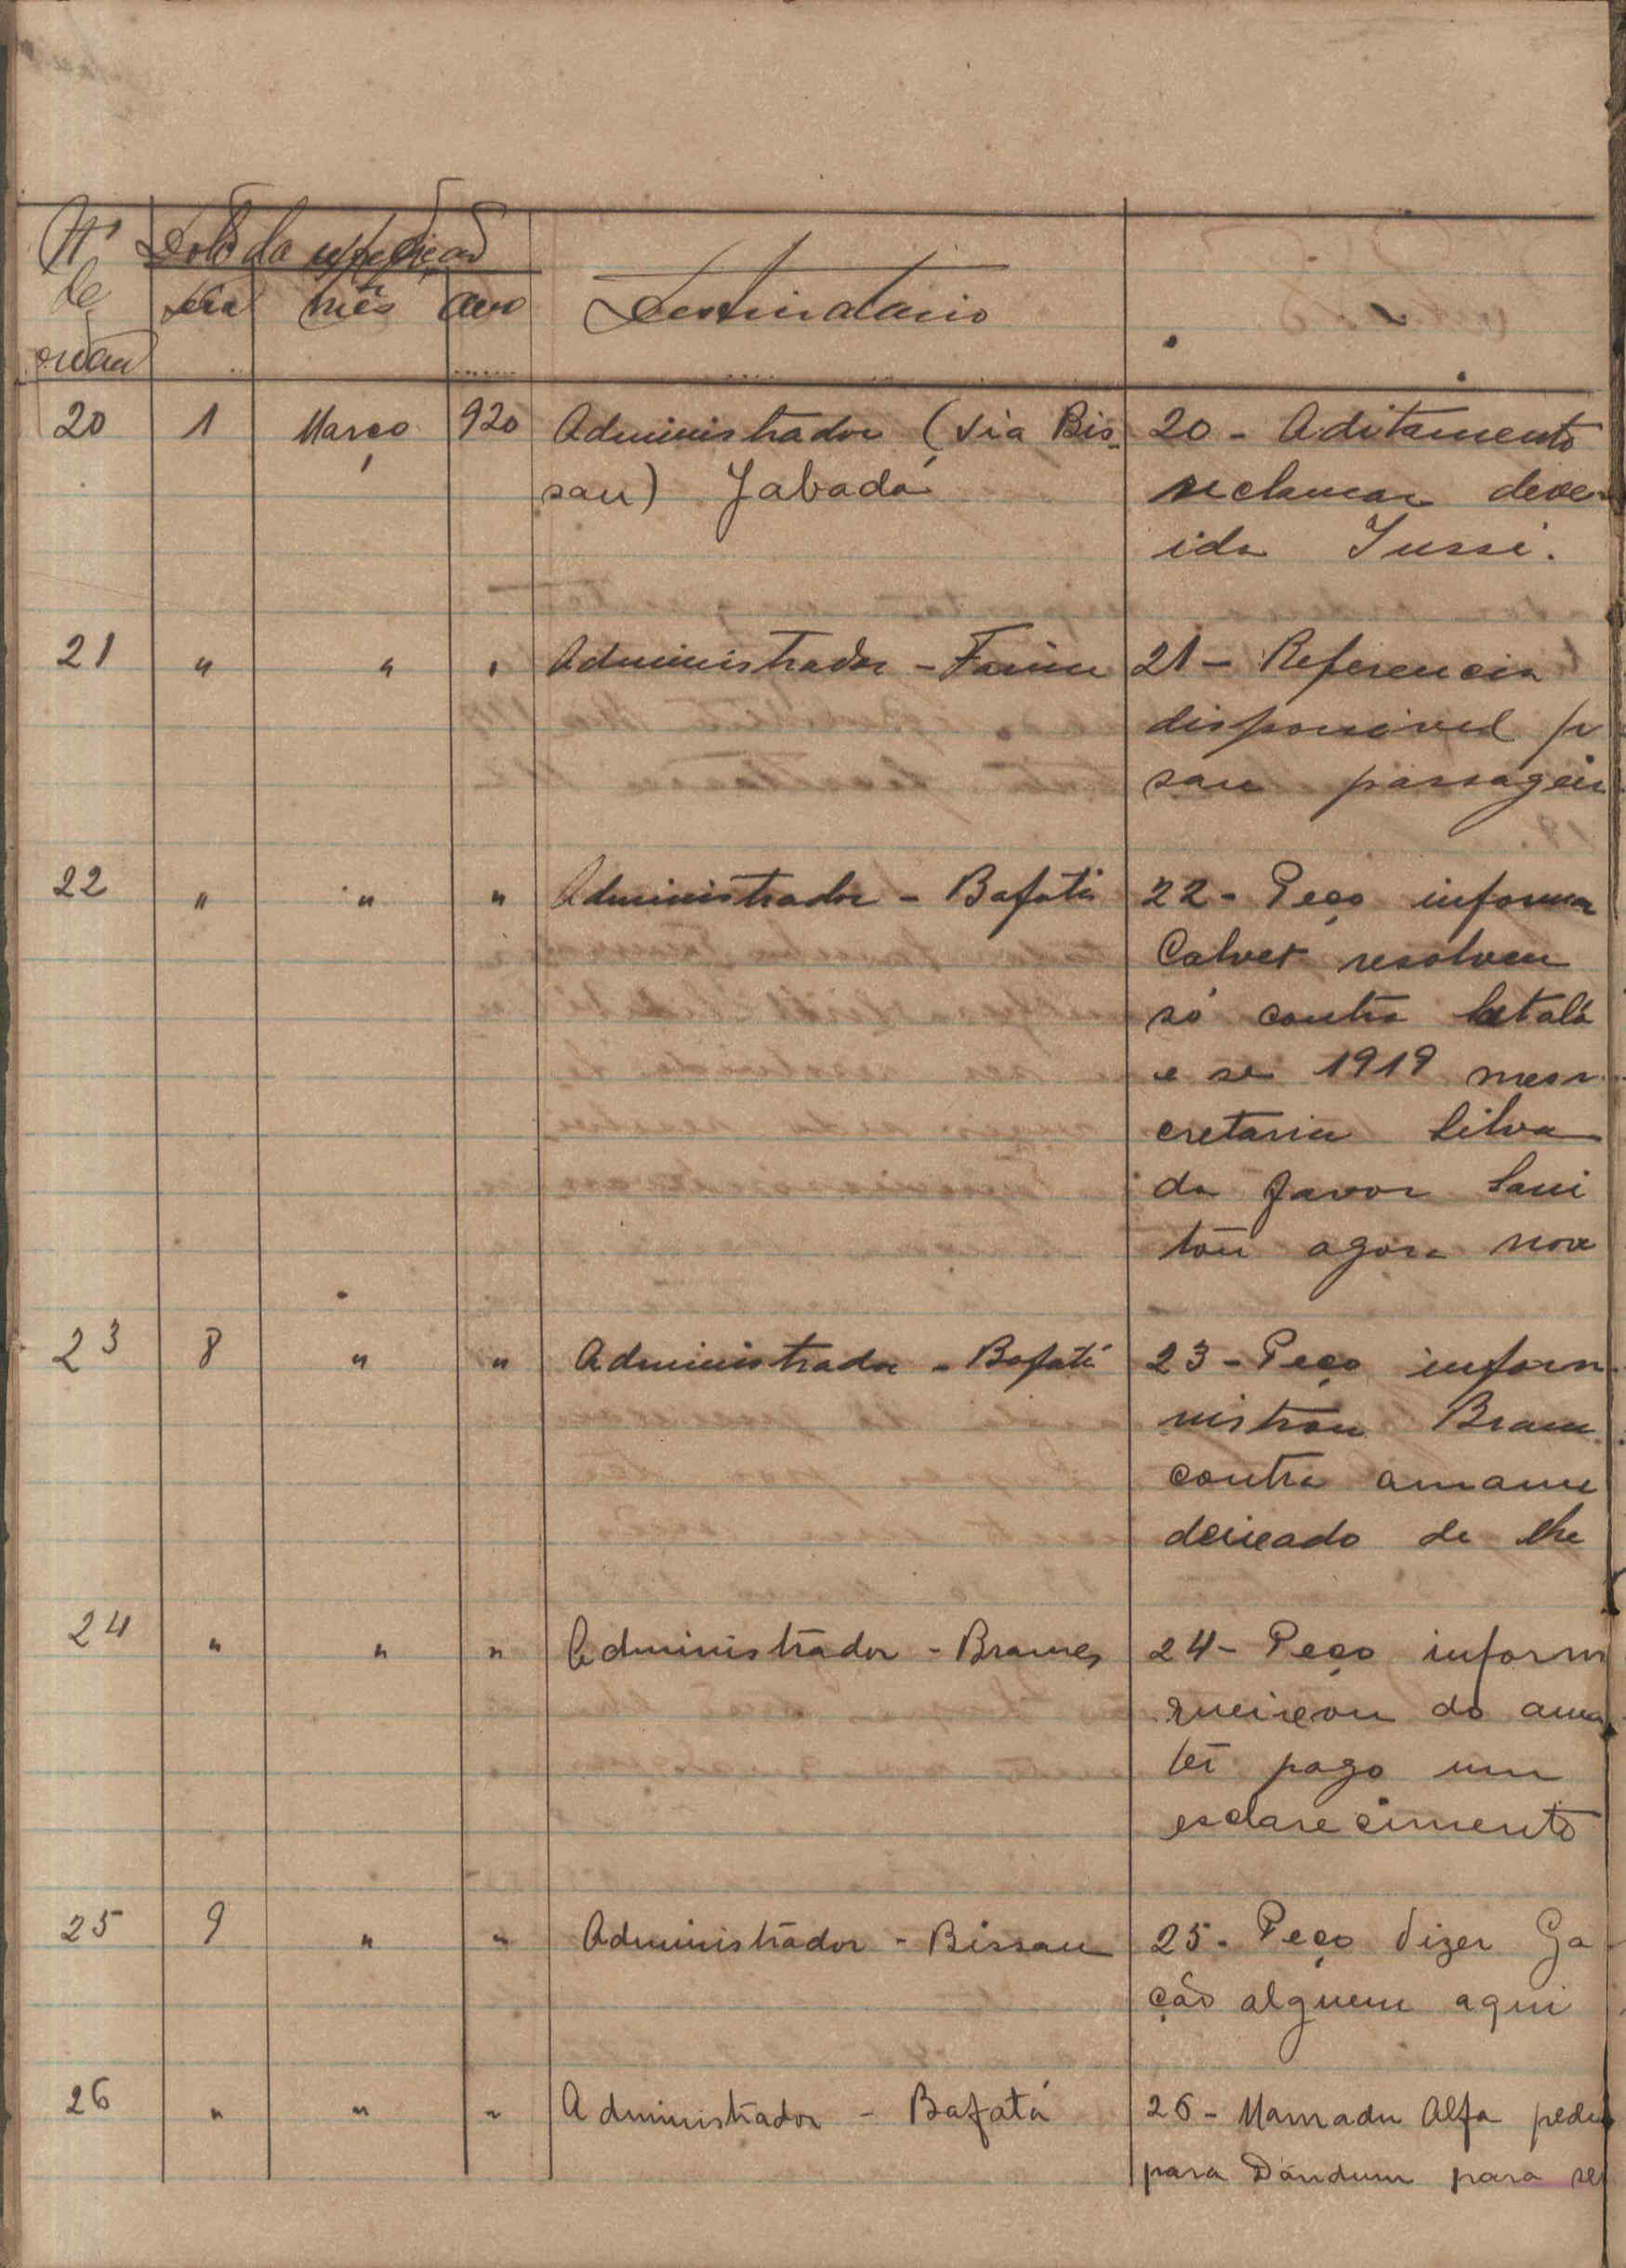 Nº Data da expedição
de dia mês ano Destinatario
ordem
20 1 Março 920 Administrador (via Bis- 20 - Aditamento
sau) Jabadá reclamar deve
ida Jussi.
21 " " " Administrador - Farim 21 - Referencia
disponivel p
sau passagen
22 " " " Administrador - Bafatá 22 - Peço informa
Calvet resolveu
só contra
e se 1919 mesm
cretaria Silva
da favor Sani
tou agora nov
23 8 " " Administrador - Bafatá 23 - Peço inform
nistrou Bram
contra amanu
deixado de lhe
24 " " " Administrador - Brames 24 - Peço inform
queixou do ama
ter pago um
esclarecimento
25 9 " " Administrador - Bissau 25 - Peço dizer Ga
ção alguem aqui
26 " " " Administrador - Bafatá 26 - Mamadu Alfa pediu
para Dandum para se